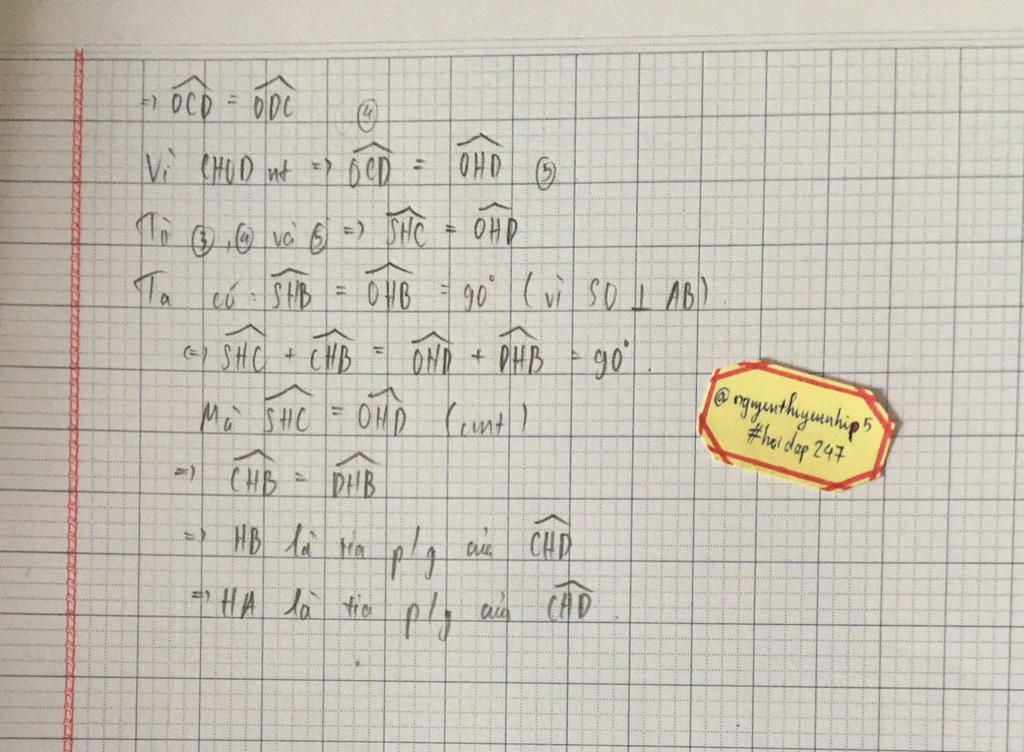 => \widehat{OCD} = \widehat{ODC} ④
Vì CHOD nt => \widehat{OCD} = \widehat{OHD} ⑤
Từ ③, ④ và ⑤ => \widehat{SHC} = \widehat{OHD}
Ta có: \widehat{SHB} = \widehat{OHB} = 90° (vì SO ⊥ AB).
<=> \widehat{SHC} + \widehat{CHB} = \widehat{OHD} + \widehat{DHB} = 90°.
Mà \widehat{SHC} = \widehat{OHD} (cmt)
=> \widehat{CHB} = \widehat{DHB}
=> HB là tia p/g của \widehat{CHD}
=> HA là tia p/g của \widehat{CHD}.
@nguyenthiyennhip5
#hoidap247